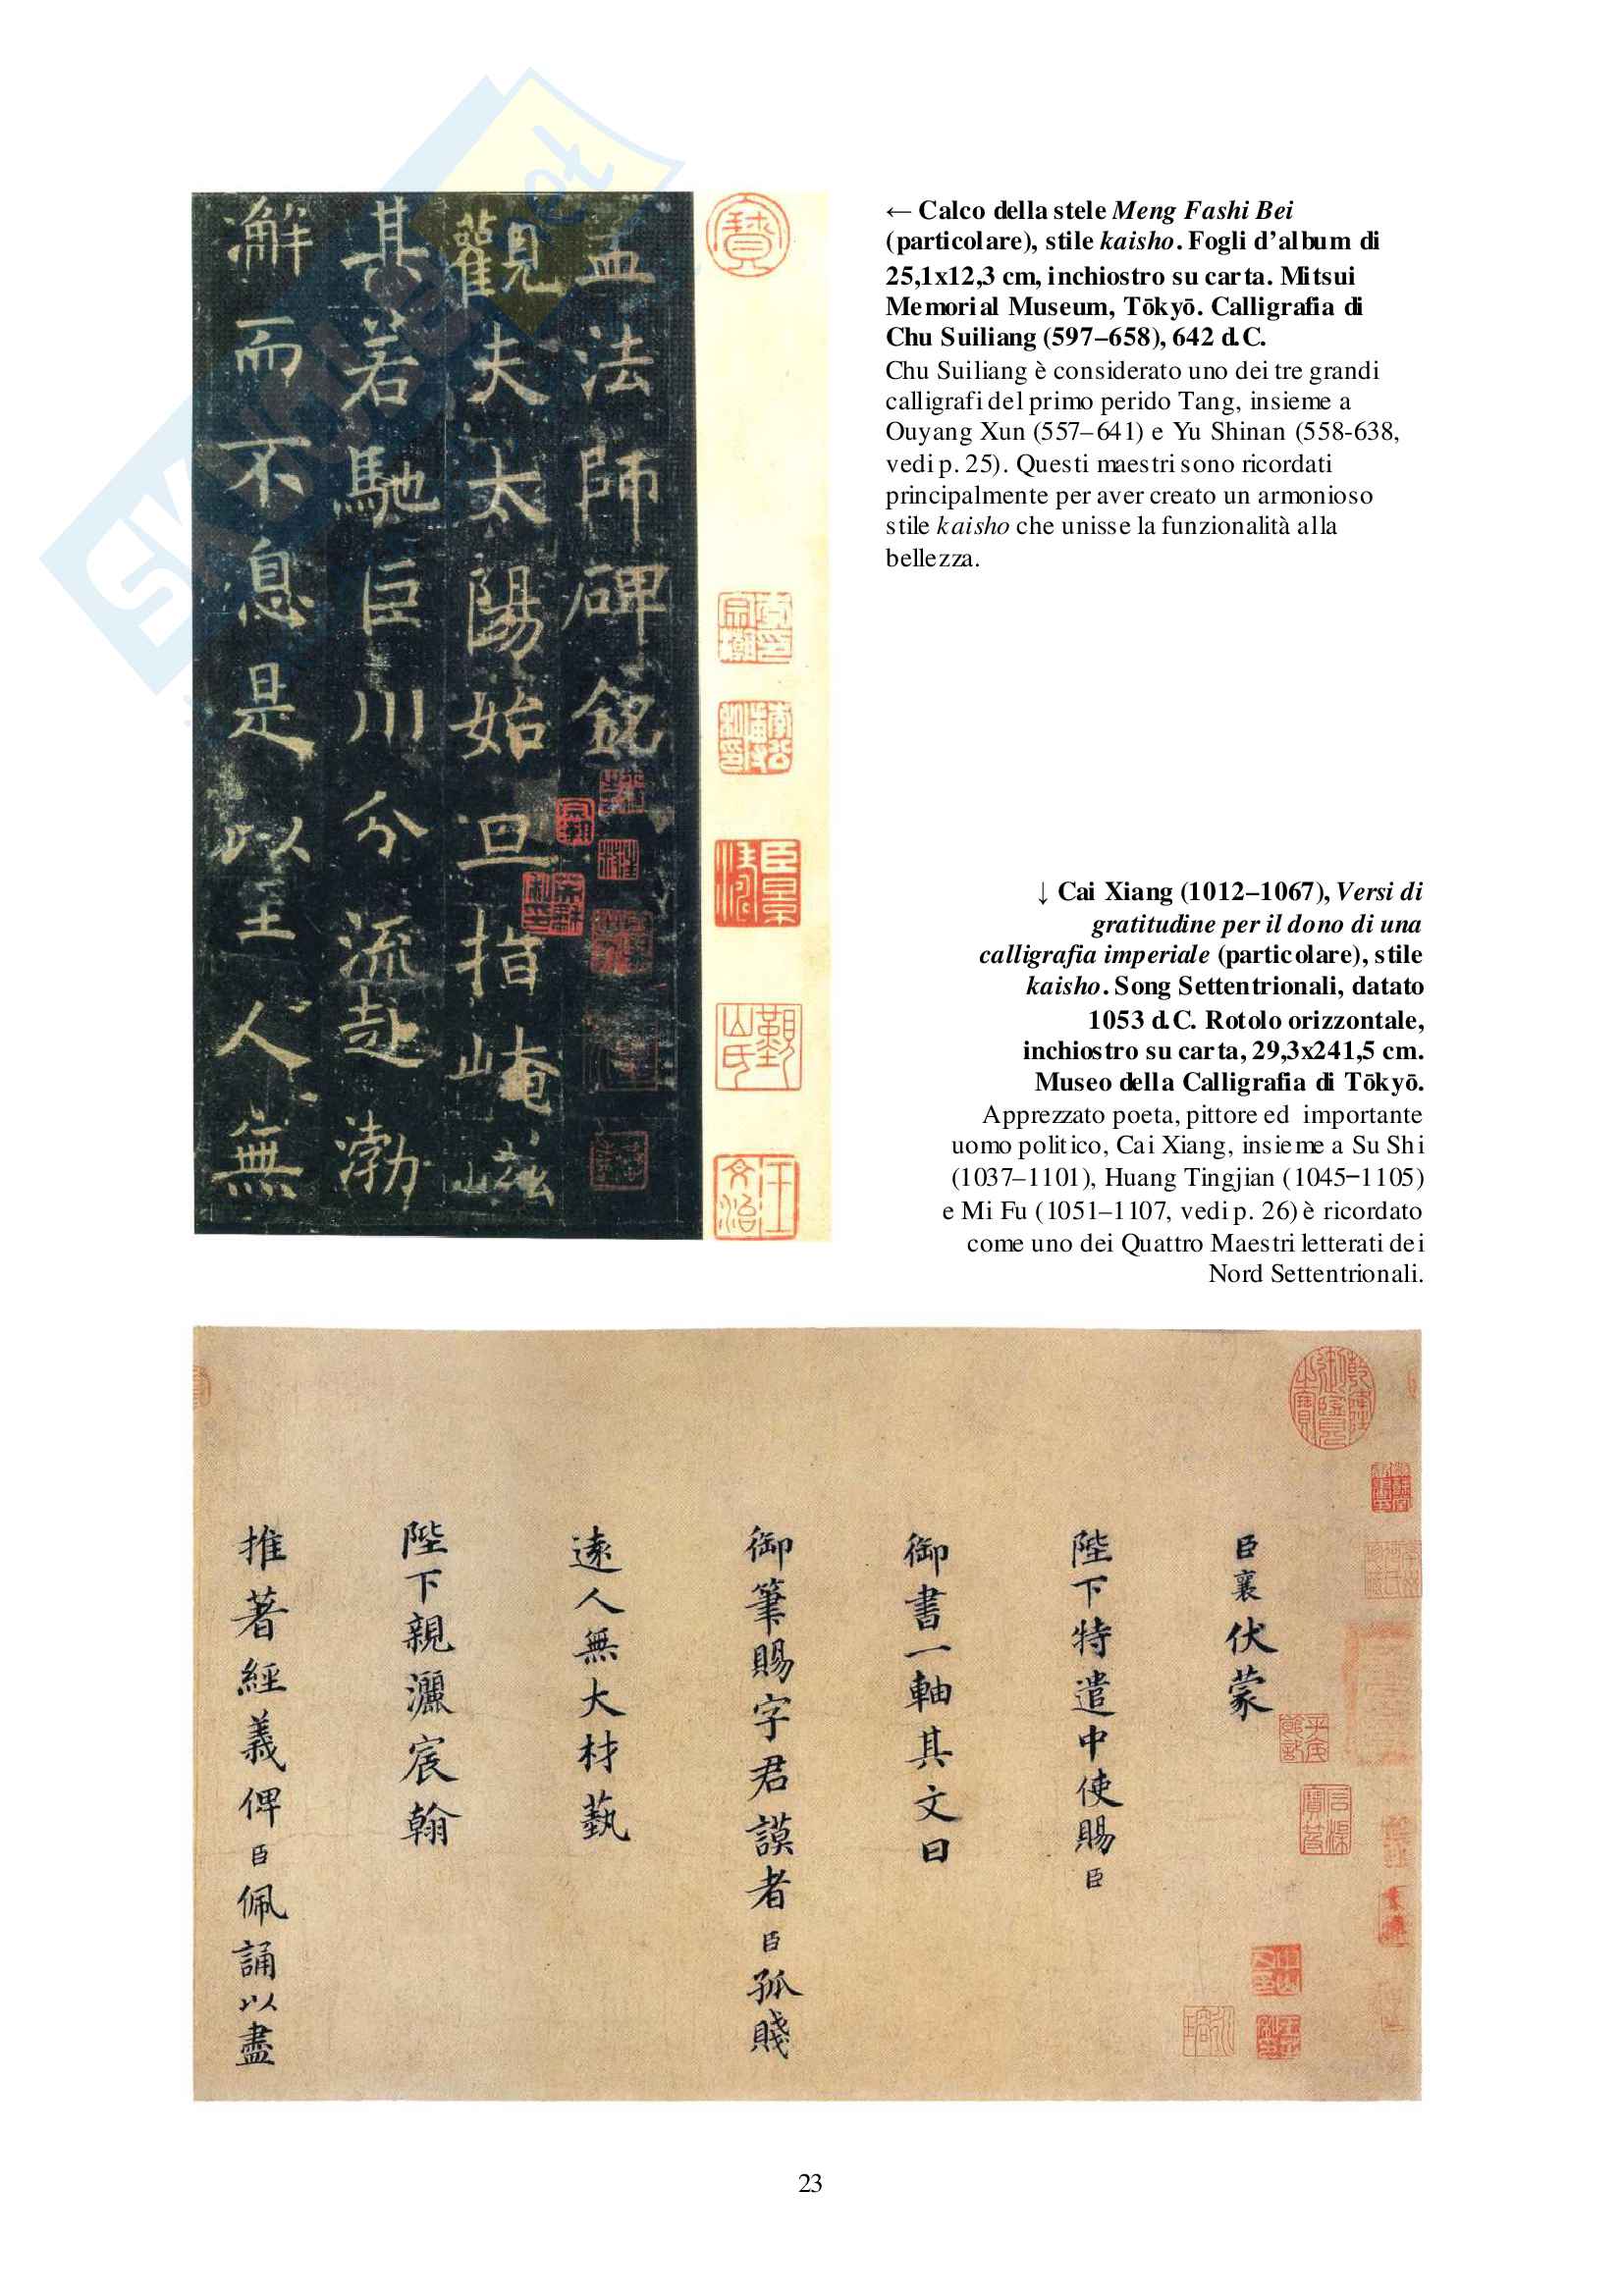 ← Calco della stele Meng Fashi Bei
(particolare), stile kaisho. Fogli d'album di
25,1x12,3 cm, inchiostro su carta. Mitsui
Memorial Museum, Tōkyō. Calligrafia di
Chu Suiliang (597–658), 642 d.C.
Chu Suiliang è considerato uno dei tre grandi
calligrafi del primo perido Tang, insieme a
Ouyang Xun (557–641) e Yu Shinan (558-638,
vedi p. 25). Questi maestri sono ricordati
principalmente per aver creato un armonioso
stile kaisho che unisse la funzionalità alla
bellezza.
孟法師碑銘
觀夫太陽始旦指崦嵫
其若馳巨川分流赴渤
澥而不息是以至人無
↓ Cai Xiang (1012–1067), Versi di
gratitudine per il dono di una
calligrafia imperiale (particolare), stile
kaisho. Song Settentrionali, datato
1053 d.C. Rotolo orizzontale,
inchiostro su carta, 29,3x241,5 cm.
Museo della Calligrafia di Tōkyō.
Apprezzato poeta, pittore ed importante
uomo politico, Cai Xiang, insieme a Su Shi
(1037–1101), Huang Tingjian (1045–1105)
e Mi Fu (1051–1107, vedi p. 26) è ricordato
come uno dei Quattro Maestri letterati dei
Nord Settentrionali.
臣襄伏蒙
陛下特遣中使賜臣
御書一軸其文曰
御筆賜字君謨者臣孤賤
遠人無大材藝
陛下親灑宸翰
推著經義俾臣佩誦以盡
23